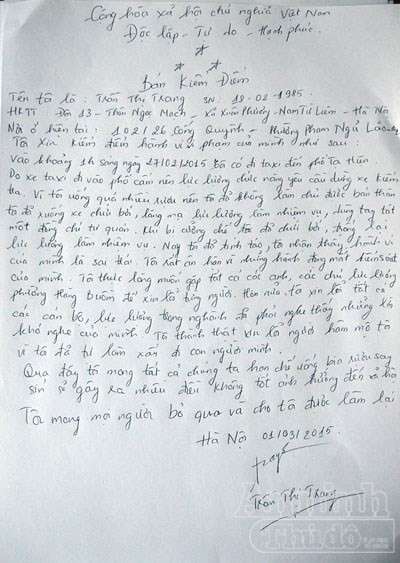 Cộng hòa xã hội chủ nghĩa Việt Nam
Độc lập - Tự do - Hạnh phúc.
Bản Kiểm Điểm
Tên tôi là : Trần Thị Trang SN: 18-02-1985.
HKTT : Đội 13 - Thôn Ngọc Mạch - Xã Xuân Phương - Nam Từ Liêm - Hà Nội
Nơi ở hiện tại : 102/26 Cống Quỳnh - Phường Phạm Ngũ Lão
Tôi xin kiểm điểm hành vi vi phạm của mình như sau:
Vào khoảng 1h sáng ngày 27/02/2015 tôi có đi taxi đến phố Tạ Hiện.
Do xe taxi đi vào phố cấm nên lực lượng chức năng yêu cầu dừng xe kiểm
tra. Vì tôi uống quá nhiều rượu nên tôi đã không làm chủ được bản thân
tôi đã xuống xe chửi bới, lăng mạ lực lượng làm nhiệm vụ, dùng tay tát
một đồng chí tự quản. Khi bị cưỡng chế tôi đã chửi bới, chống lại
lực lượng làm nhiệm vụ. Nay tôi đã tỉnh táo, tôi nhận thấy hành vi
của mình là sai trái. Tôi rất ân hận vì những hành động mất kiểm soát
của mình. Tôi thực lòng muốn gặp tất cả các anh, các chú lực lượng
phường Hàng Buồm để xin lỗi từng người. Hơn nữa, tôi xin lỗi tất cả
các cán bộ, lực lượng trong nghành đã phải nghe thấy những lời
khó nghe của mình. Tôi thành thật xin lỗi người hâm mộ tôi
vì tôi đã tự làm xấu đi con người mình.
Qua đây tôi mong tất cả chúng ta hạn chế uống bia rượu say
sỉn sẽ gây ra nhiều điều không tốt ảnh hưởng đến xã hội
Tôi mong mọi người bỏ qua và cho tôi được làm lại
Hà Nội 01/03/2015.
Trang
Trần Thị Trang
An ninh
Thủ đô